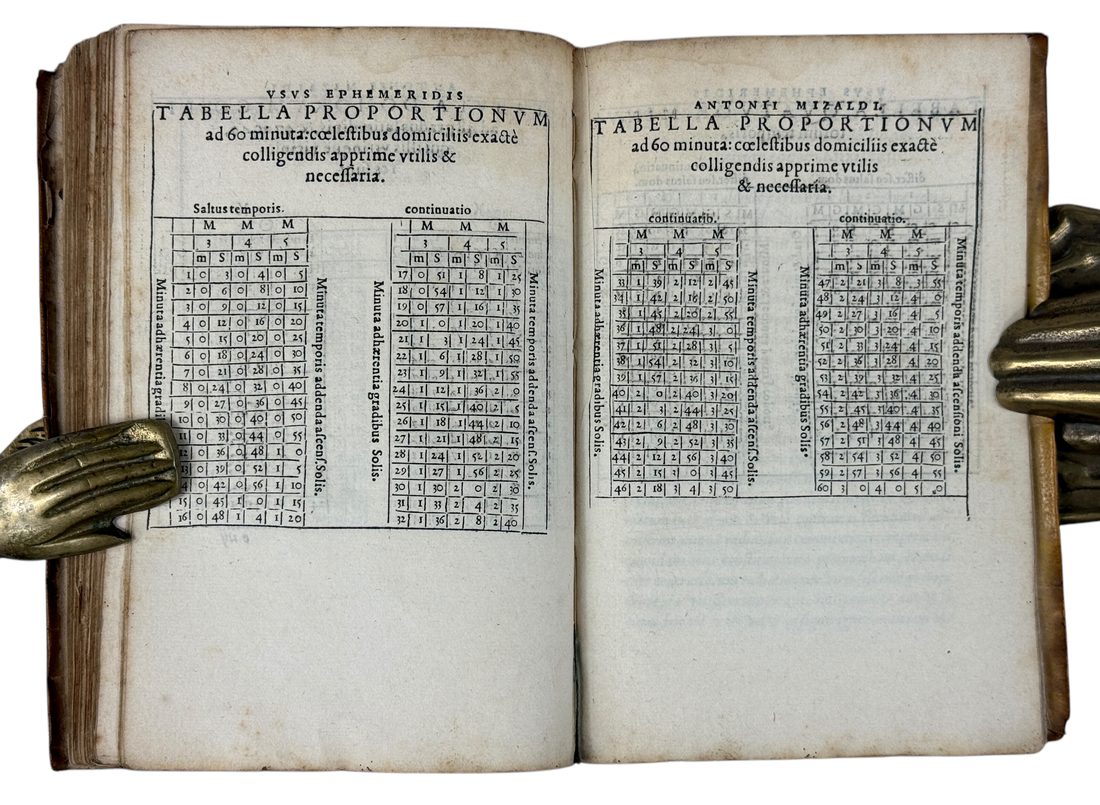 VSVS EPHEMERIDIS
TABELLA PROPORTIONVM
ad 60 minuta: cœleſtibus domiciliis exactè
colligendis apprime vtilis &
neceſſaria.
Saltus temporis.
M M M
3 4 5
m S m S m S
Minuta adhærentia gradib
1 0 3 0 4 0 5
2 0 6 0 8 0 10
3 0 9 0 12 0 15
4 0 12 0 16 0 20
5 0 15 0 20 0 25
6 0 18 0 24 0 30
7 0 21 0 28 0 35
8 0 24 0 32 0 40
9 0 27 0 36 0 45
10 0 30 0 40 0 50
11 0 33 0 44 0 55
12 0 36 0 48 1 0
13 0 39 0 52 1 5
0 42 0 56 1 10
15 0 45 1 0 1 15
16 0 48 1 4 1 20
Minuta temporis addenda aſcenſ. Solis.
continuatio
M M M
3 4 5
m S m S m S
Minuta adhærentia gradibus Solis.
17 0 51 1 8 1 25
18 0 54 1 12 1 30
19 0 57 1 16 1 35
20 1 0 1 20 1 40
21 1 3 1 24 1 45
22 1 6 1 28 1 50
23 1 9 1 32 1 55
24 1 12 1 36 2 0
25 1 15 1 40 2 5
26 1 18 1 44 2 10
27 1 21 1 48 2 15
28 1 24 1 52 2 20
29 1 27 1 56 2 25
30 1 30 2 0 2 30
31 1 33 2 4 2 35
32 1 36 2 8 2 40
Minuta temporis addenda aſcenſ. Solis.
ANTONII MIZALDI.
TABELLA PROPORTIONVM
ad 60 minuta: cœleſtibus domiciliis exactè
colligendis apprime vtilis
& neceſſaria.
continuatio.
M M M
3 4 5
m S m S m S
Minuta adhærentia gradibus Solis.
33 1 39 2 12 2 45
34 1 42 2 16 2 50
35 1 45 2 20 2 55
36 1 48 2 24 3 0
37 1 51 2 28 3 5
38 1 54 2 32 3 10
39 1 57 2 36 3 15
40 2 0 2 40 3 20
41 2 3 2 44 3 25
42 2 6 2 48 3 30
43 2 9 2 52 3 35
44 2 12 2 56 3 40
45 2 15 3 0 3 45
46 2 18 3 4 3 50
Minuta temporis addenda aſcenſ. Solis.
continuatio.
M M M
3 4 5
m S m S m S
Minuta adhærentia gradibus Solis.
47 2 21 3 8 3 55
48 2 24 3 12 4 0
49 2 27 3 16 4 5
50 2 30 3 20 4 10
51 2 33 3 24 4 15
52 2 36 3 28 4 20
53 2 39 3 32 4 25
54 2 42 3 36 4 30
55 2 45 3 40 4 35
56 2 48 3 44 4 40
57 2 51 3 48 4 45
58 2 54 3 52 4 50
59 2 57 3 56 4 55
60 3 0 4 0 5 0
Minuta temporis addenda aſcenſioni Solis.